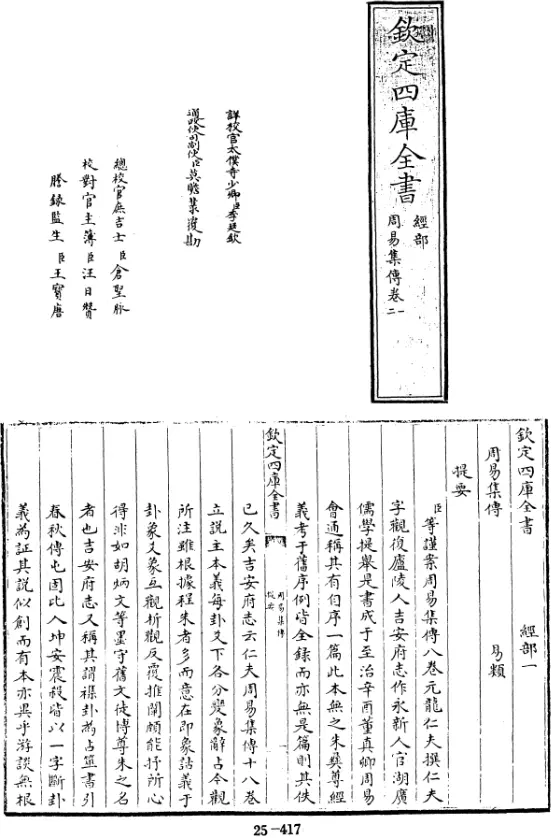 欽定四庫全書
經部
周易集傳卷一
二
詳校官太僕寺少卿臣李廷欽
通政使司副使臣莫瞻菉覆勘
總校官庶吉士臣倉聖脉
校對官主簿臣汪日贊
謄錄監生臣王寶唐
欽定四庫全書 經部一
周易集傳 易類
提要
臣等謹案周易集傳八卷元龍仁夫撰仁夫
字觀復廬陵人吉安府志作永新人官湖廣
儒學提舉是書成于至治辛酉董真卿周易
會通稱其有自序一篇此本無之朱彝尊經
義考于舊序例皆全錄而亦無是篇則其佚
欽定四庫全書 周易集傳 提要
已久矣吉安府志云仁夫周易集傳十八卷
立說主本義每卦爻下各分變象辭占今觀
所注雖根據程朱者多而意在即象詁義于
卦象爻象互觀析觀反覆推闡頗能抒所心
得非如胡炳文等墨守舊文徒博尊朱之名
者也吉安府志又稱其謂雜卦為占筮書引
春秋傳屯固比入坤安震殺皆以一字斷卦
義為証其說似創而有本亦異乎游談無根
25-417